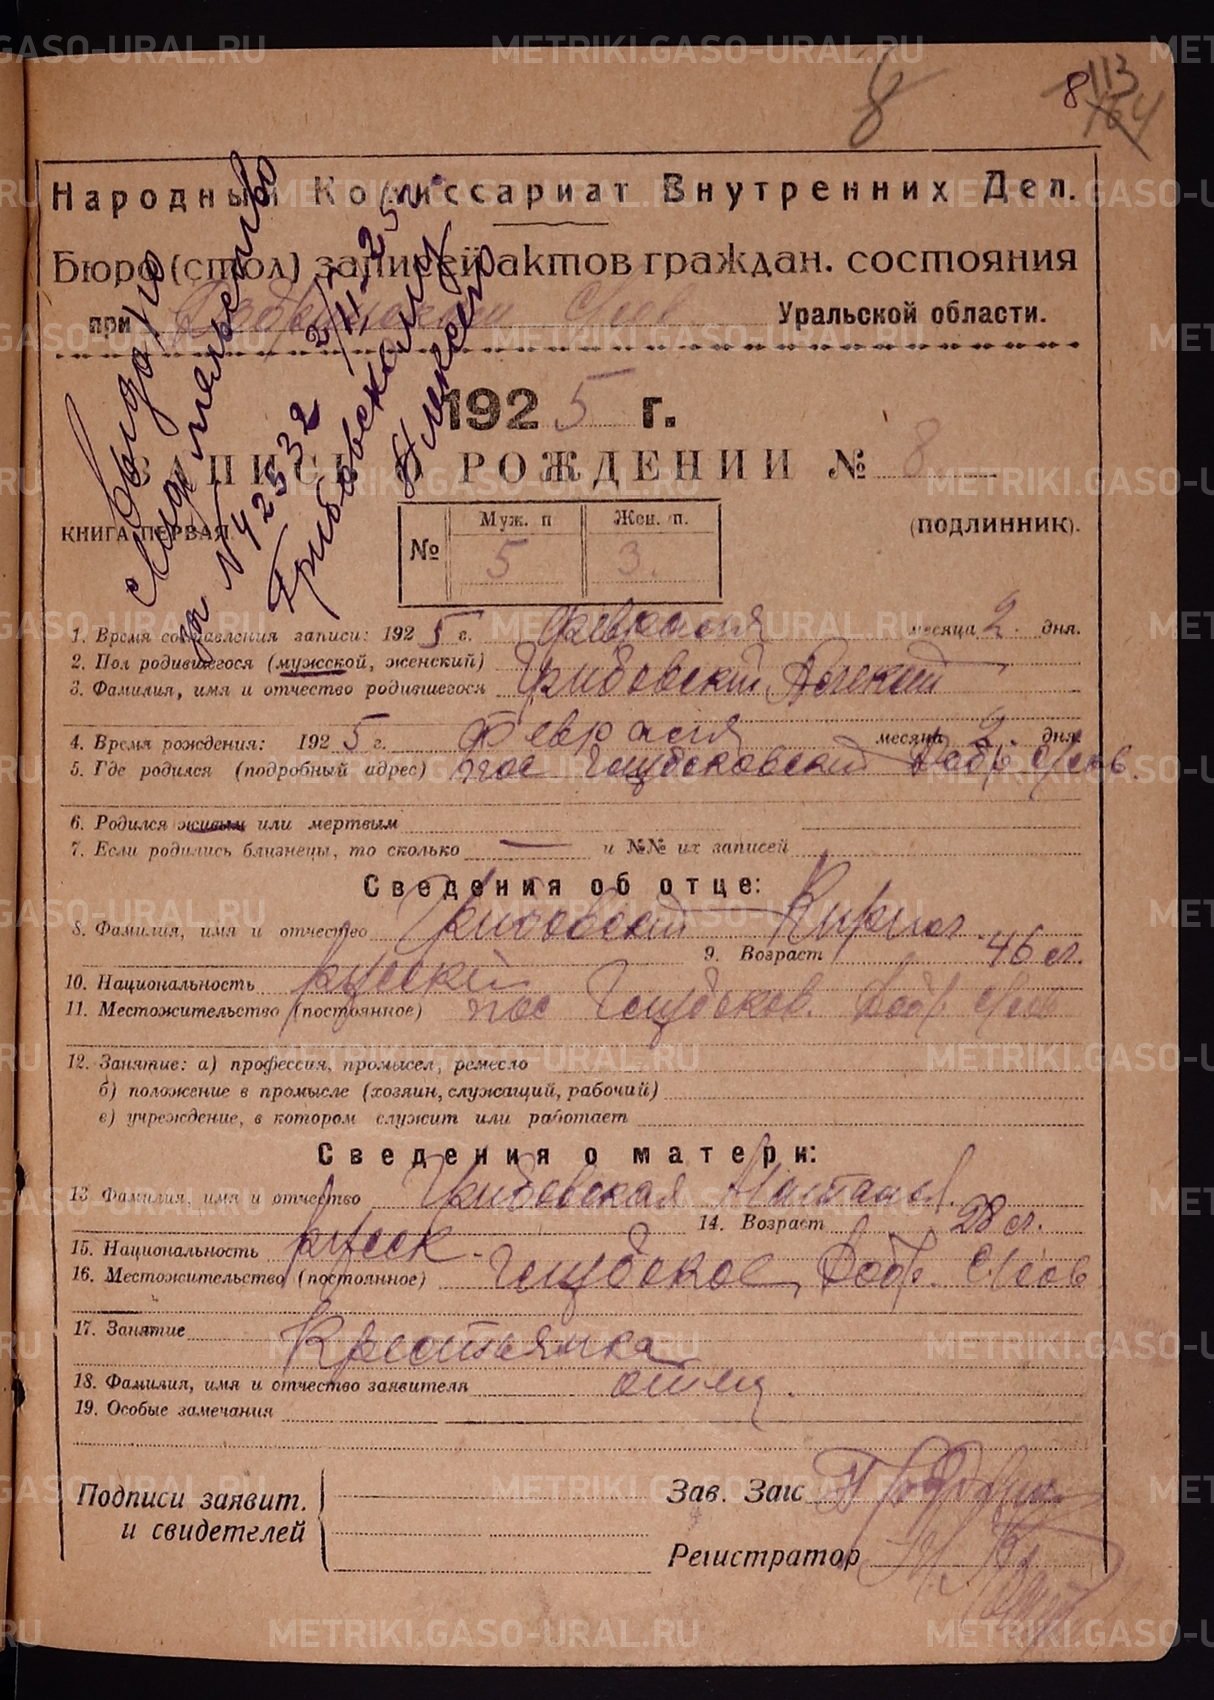 8
8
113
164
Народный Комиссариат Внутренних Дел.
Бюро (стол) записей актов граждан. состояния
при Уральской области.
1925 г.
ЗАПИСЬ О РОЖДЕНИИ № 8
КНИГА ПЕРВАЯ
(ПОДЛИННИК).
№ Муж. п Жен. п.
5 3.
Выдано
свидетельство
за № 42532 2/II-25
Грибовский
Алексей
1. Время составления записи: 1925 г. февраля месяца 2. дня.
2. Пол родившегося (мужской, женский)
3. Фамилия, имя и отчество родившегося Грибовский Алексей
4. Время рождения: 1925 г. Февраля месяца 2. дня
5. Где родился (подробный адрес) пос Добр с/сов.
6. Родился живым или мертвым
7. Если родились близнецы, то сколько — и №№ их записей
Сведения об отце:
8. Фамилия, имя и отчество Грибовский Кирил
9. Возраст 46 л.
10. Национальность русский
11. Местожительство (постоянное) пос Добр. с/сов
12. Занятие: а) профессия, промысел, ремесло
б) положение в промысле (хозяин, служащий, рабочий)
в) учреждение, в котором служит или работает
Сведения о матери:
13 Фамилия, имя и отчество Грибовская
14. Возраст 28 л.
15. Национальность русск.
16. Местожительство (постоянное) Добр. с/сов
17. Занятие Крестьянка
18. Фамилия, имя и отчество заявителя отец.
19. Особые замечания
Подписи заявит.
и свидетелей
Зав. Загс
Регистратор
METRIKI.GASO-URAL.RU